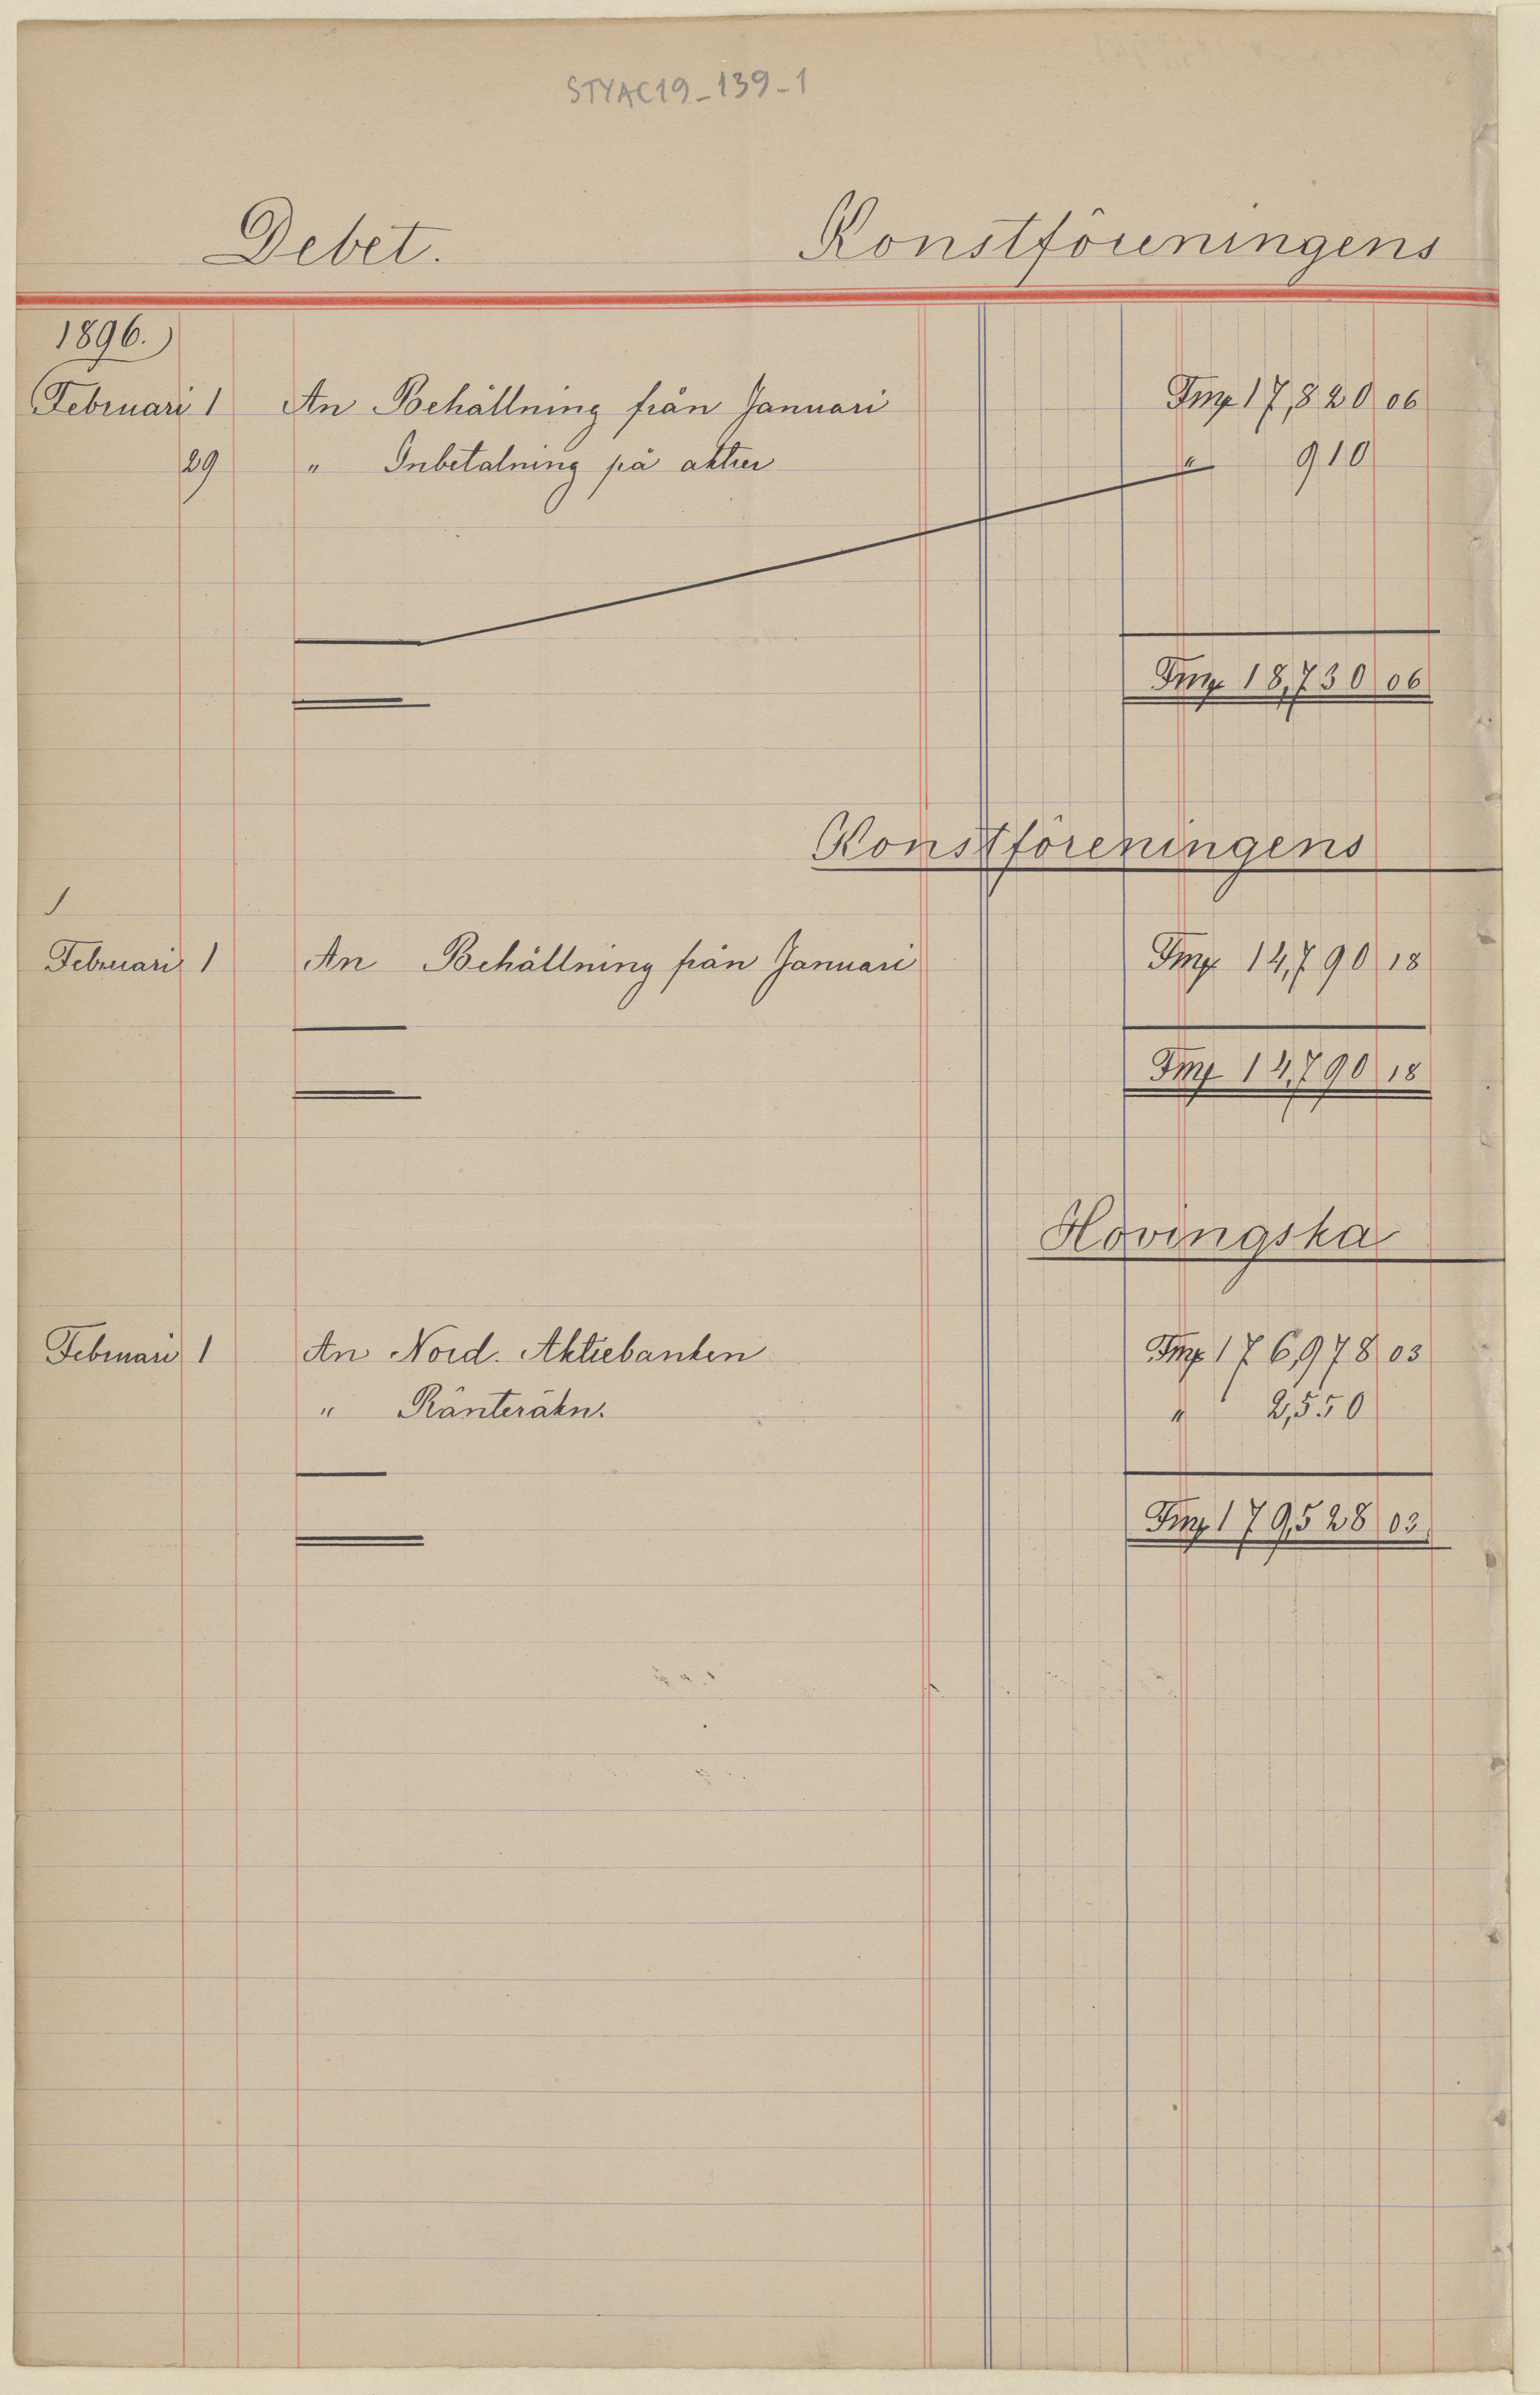 STYAC19_139-1
Debet. Konstföreningens
1896.
Februari 1 An Behållning från Januari Fmg 17,820 06
29 " Inbetalning på aktier " 910
Fmg 18,730 06
Konstföreningens
Februari 1 An Behållning från Januari Fmg 14,790 18
Fmg 14,790 18
Hovingska
Februari 1 An Nord. Aktiebanken Fmg 176,978 03
" Ränteräkn. " 2,550
Fmg 179,528 03